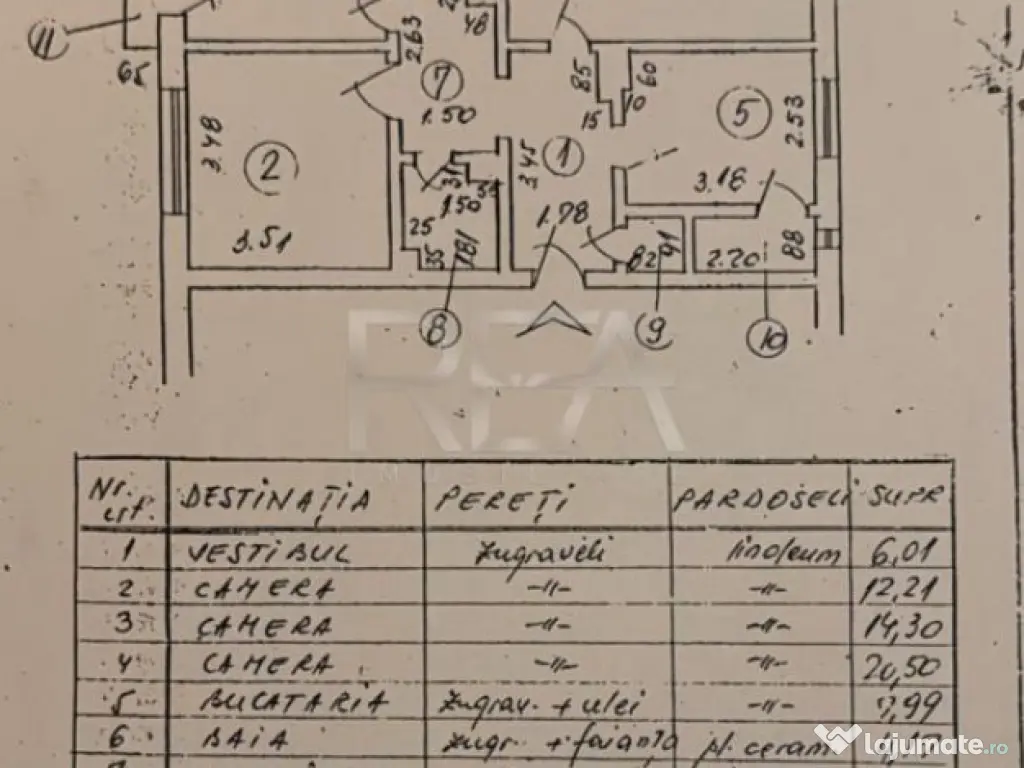 11
65
2.63
48
7
1.50
85
60
15
10
5
2.53
3.48
2
3.51
3.45
1
3.18
1.78
31
1.50
25
35
181
82
91
2.20
88
8
9
10
REA
Nr. crt. DESTINAȚIA PEREȚI PARDOSELI SUPR
1 VESTIBUL zugraveli linoleum 6,01
2 CAMERA -"- -"- 12,21
3 CAMERA -"- -"- 14,30
4 CAMERA -"- -"- 20,50
5 BUCATARIA zugrav. + ulei -"- 7,99
6 BAIA zugr. + faianta pl. ceram
lajumate.ro